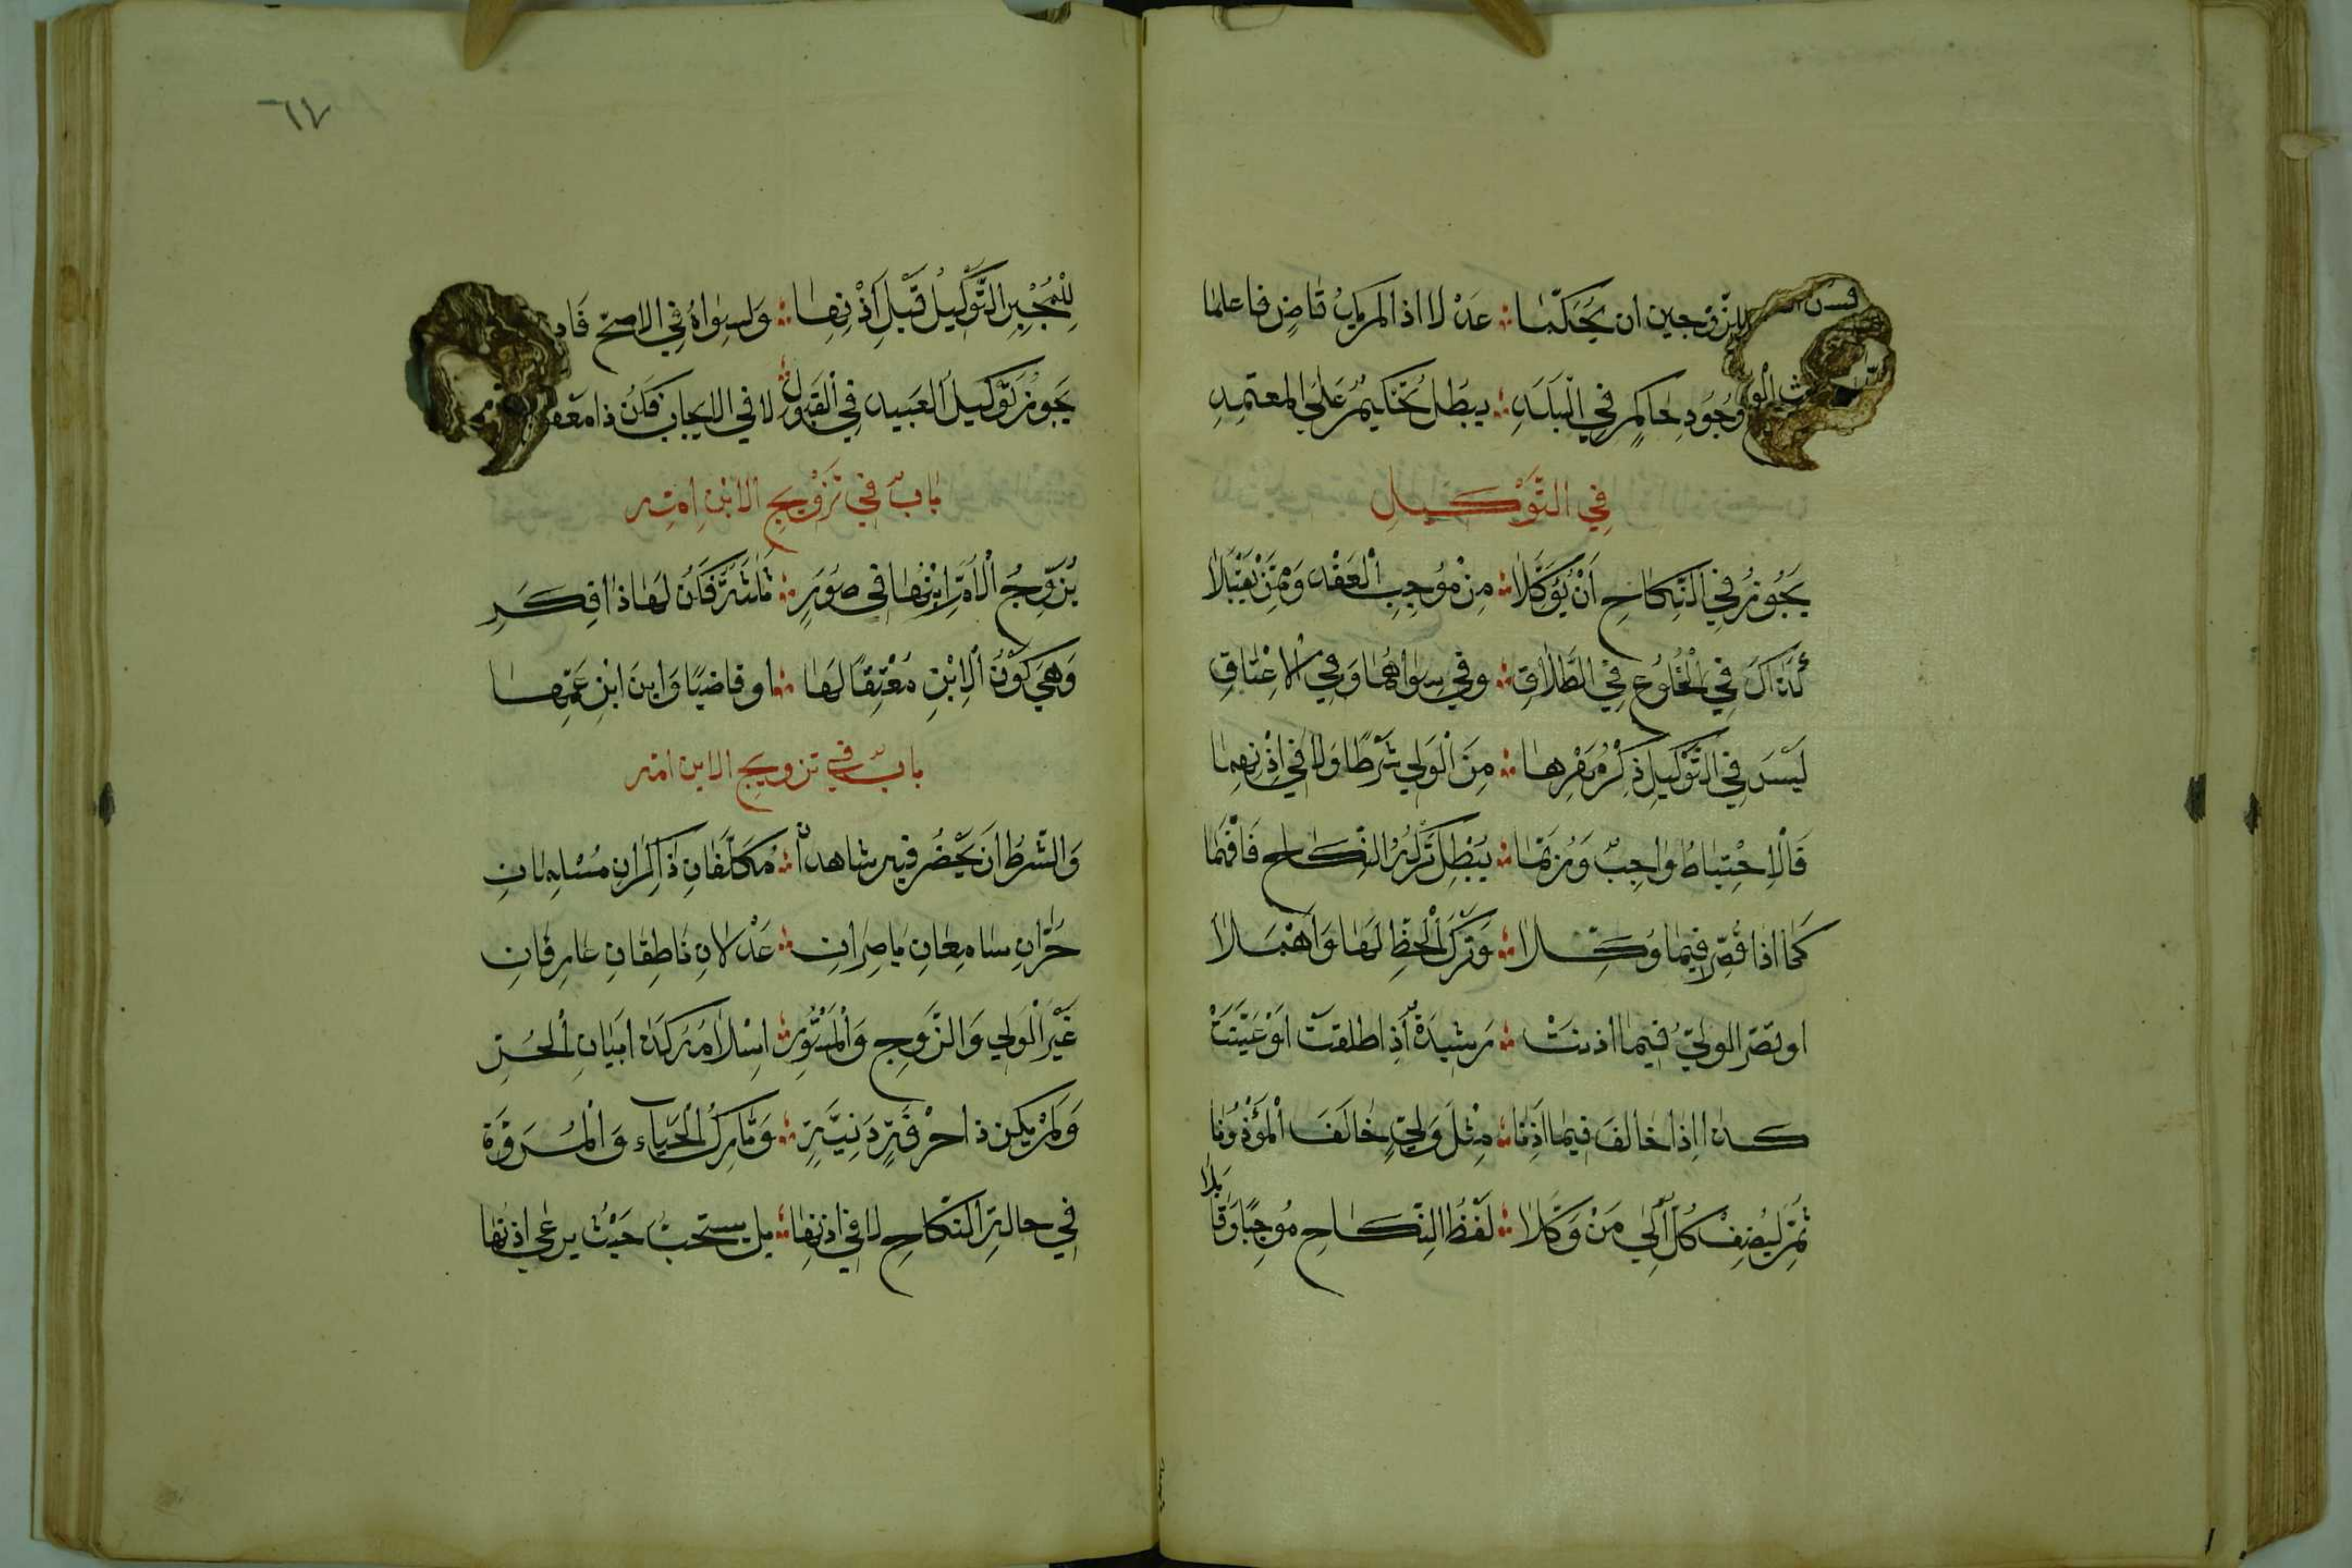 للزوجين ان يحكما ؛ عدلا اذا لم يك قاض فاعلما
وجود حاكم في البلد ؛ يبطل تحكيم على المعتمد
في التوكيل
يَجُوزُ فِي النِّكَاحِ اَنْ يُوَكَّلَا ؛ مِنْ مُوجِبِ الْعَقْدِ وَمِمَّنْ يَقْبَلَا
كَذَاكَ فِي الْخُلُوعِ فِي الطَّلَاقِ ؛ وفي سواهما وفي الاعْتَاقِ
لَيْسَ فِي التَّوْكِيلِ ذِكْرُ مَهْرِهَا ؛ مِنَ الْوَلِي شَرْطًا وَلَا فِي اِذْنِهِمَا
فَالْاِحْتِيَاطُ وَاجِبٌ وَرُبَّمَا ؛ يُبْطِلُ تَرْكُ النِّكَاحِ فَافْهَمَا
كَمَا اذا قَصَّرَ فِيمَا وُكِّلَا ؛ وَتَرَكَ الْحَظَّ لَهَا وَاَهْمَلَا
او قصر الولي فيما اذنت ؛ رَشِيدَةٌ اذا اطلقت اَوْ عَيَّنَتْ
كذا اِذَا خَالَفَ فِيمَا اَذِنَا ؛ مِثْلَ وَلِيٍّ خَالَفَ الْمَؤْذُونَا
ثُمَّ لِيُضِفْ كُلٌّ اِلَى مَنْ وَكَّلَا ؛ لَفْظَ النِّكَاحِ مُوجِبًا وَقَابلا
٦٧
لِلْمُجْبِرِ التَّوْكِيلُ قَبْلَ اِذْنِهَا ؛ وَلِسِوَاهُ فِي الاصح
يَجُوزُ تَوْكِيلُ الْعَبِيدِ فِي الْقَبُولِ ؛ لا في الايجاب فَكُنْ ذا
بَابٌ فِي تَزْوِيجِ الابْنِ اِمَّهُ
يُزَوِّجُ الْاُمَّ ابْنُهَا فِي صُوَرٍ ؛ ثَلَاثَةٍ فَكُنْ لَهَا ذَا فِكَرِ
وَهِيَ كَوْنُ الِابْنِ مُعْتِقًا لَهَا ؛ او قاضيًا وَابن ابْنِ عَمِّهَا
بابٌ في تزويج الابن امه
وَالشَّرْطُ اَنْ يَحْضُرَ فِيهِ شَاهدان ؛ مُكَلَّفَانِ ذَاكِرَانِ مُسْلِمَانِ
حُرَّانِ سَامِعَانِ بَاصِرَانِ ؛ عَدْلَانِ نَاطِقَانِ عَارِفَانِ
غَيْرُ الْوَلِي وَالزَّوْجِ وَالْمَسْتُورِ ؛ اِسْلَامُهُ كَذَا بَيَانِ الْحُرِّ
وَلَمْ يكن ذا حِرْفَةٍ دَنِيَّةٍ ؛ وَتَارِكُ الْحَيَاءِ وَالْمُرُوَّة
فِي حالةِ النكاحِ لا في اذنها ؛ بل يستحب حَيْثُ يرعي اذنها